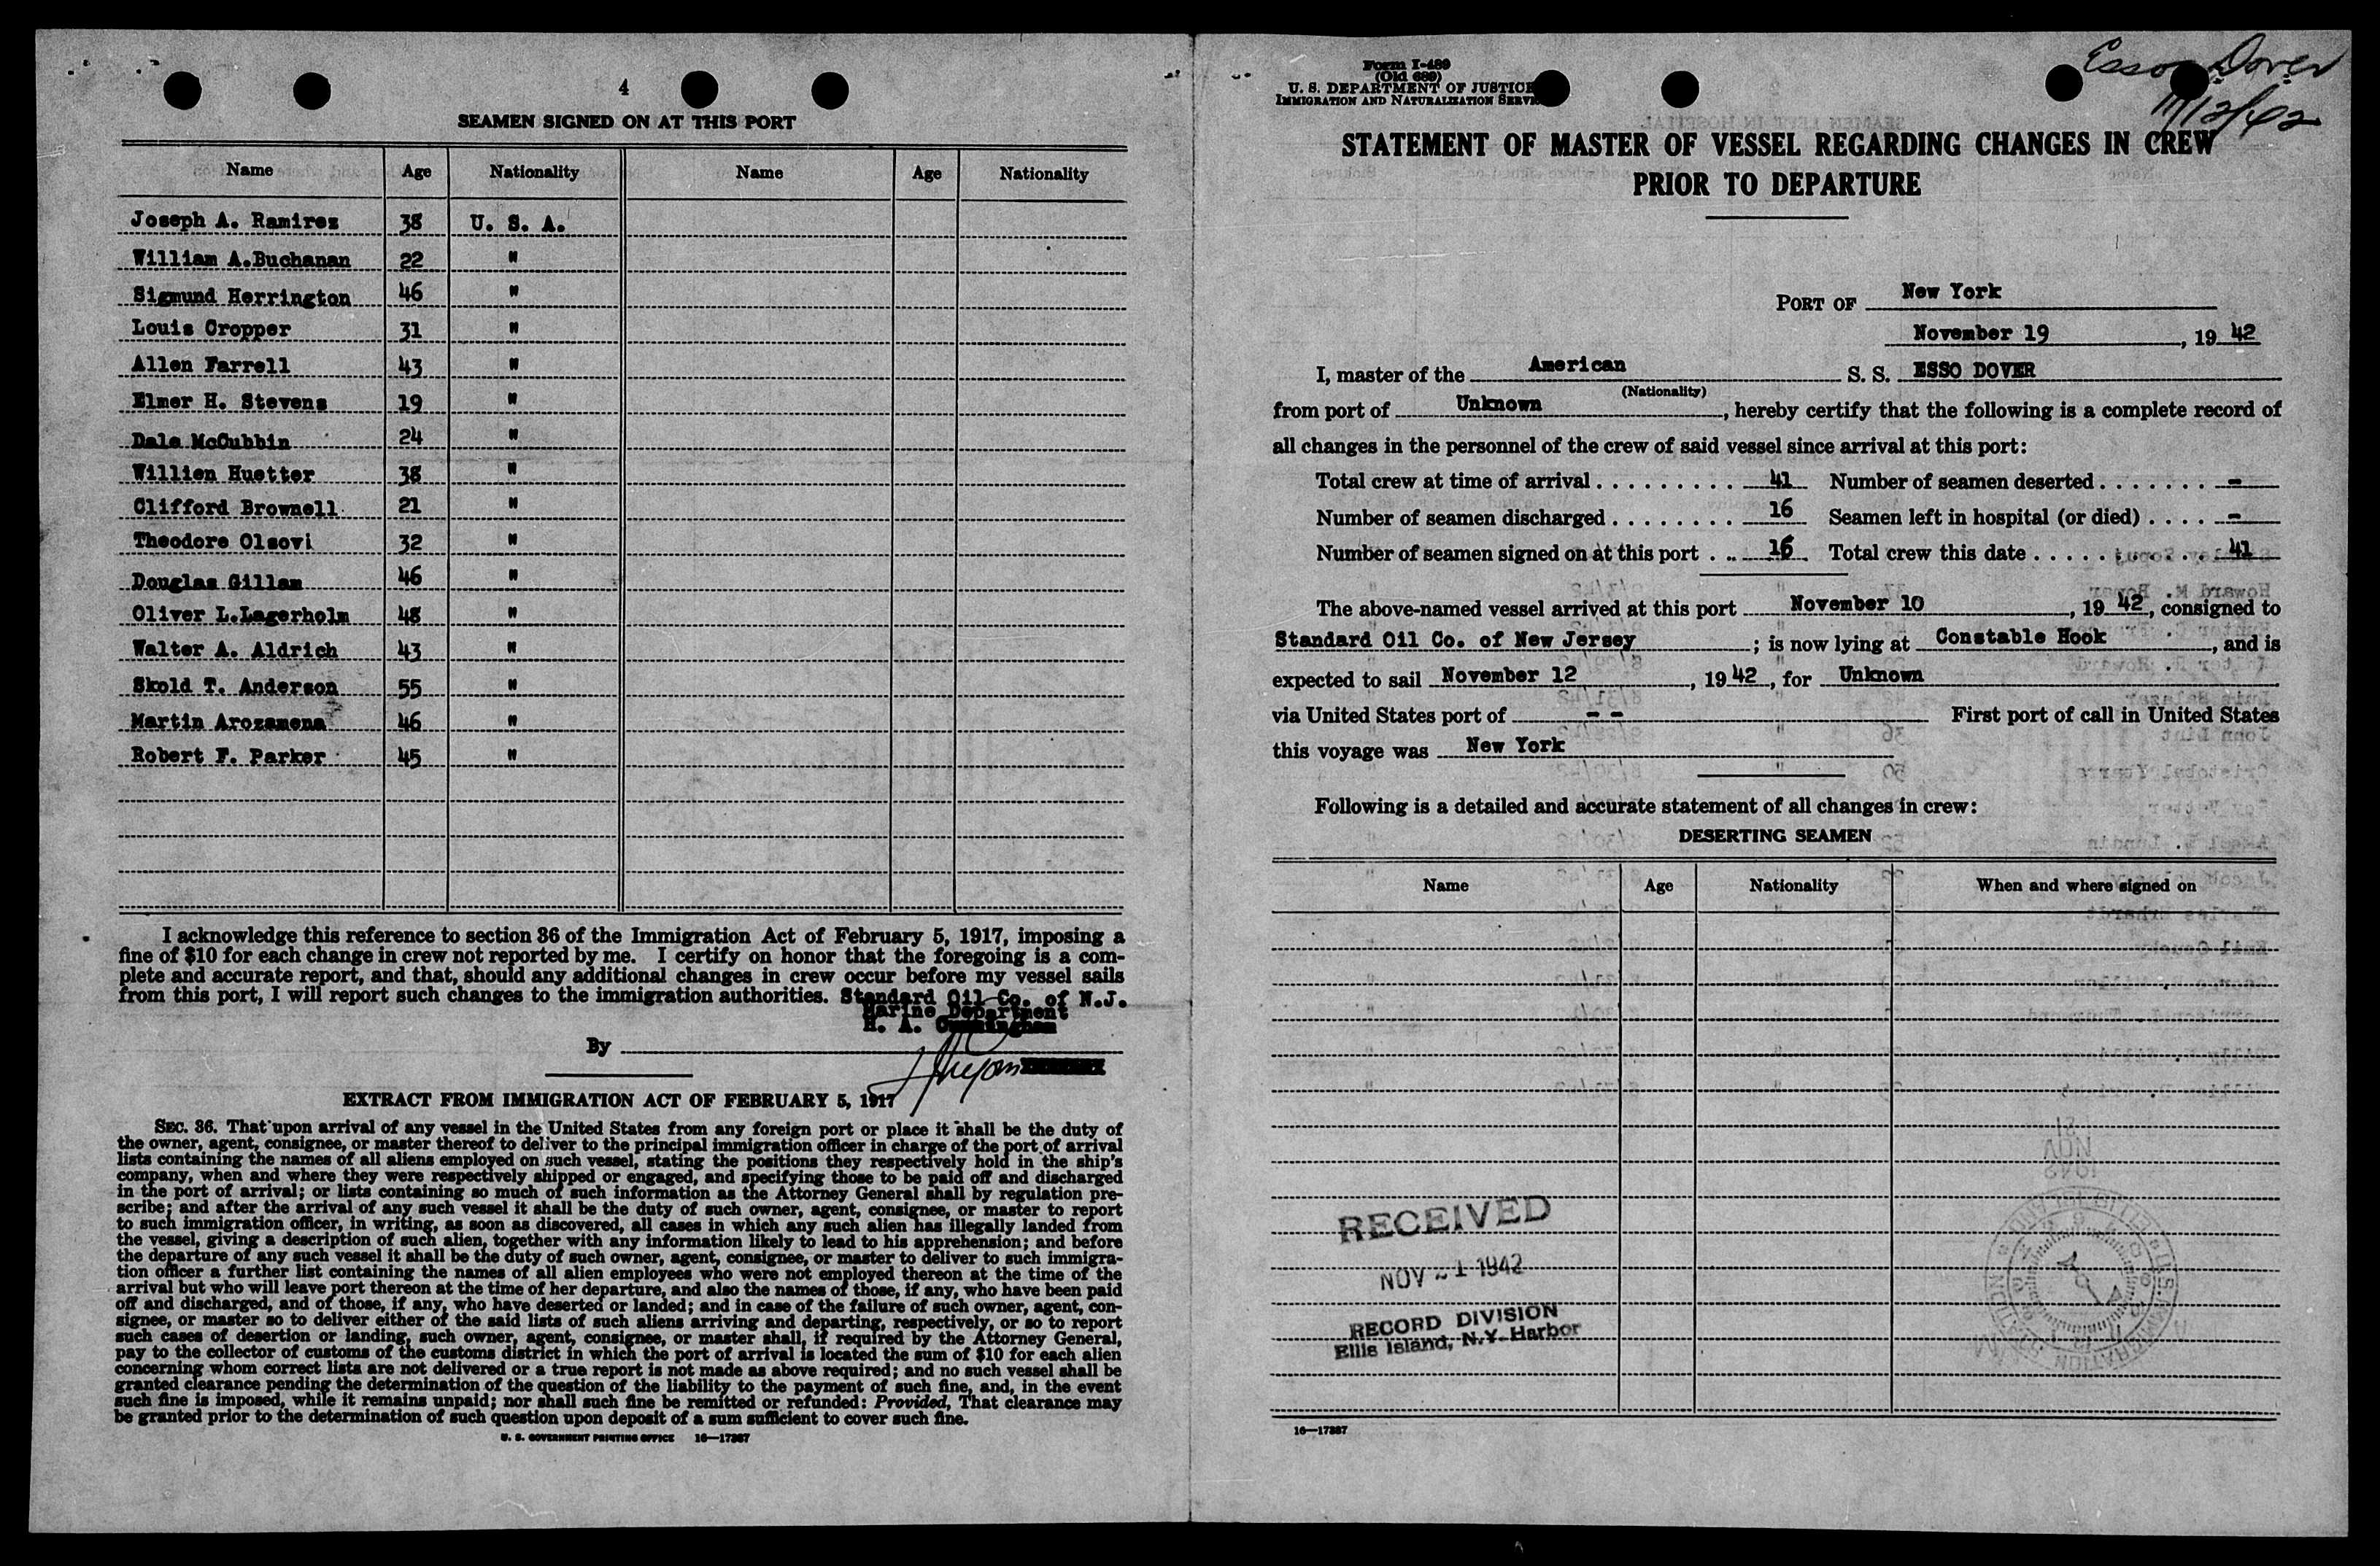 4
SEAMEN SIGNED ON AT THIS PORT
Name Age Nationality Name Age Nationality
Joseph A. Ramirez 38 U. S. A.
William A.Buchanan 22 "
Sigmund Herrington 46 "
Louis Cropper 31 "
Allen Farrell 43 "
Elmer H. Stevens 19 "
Dale McCubbin 24 "
Willien Huetter 38 "
Clifford Brownell 21 "
Theodore Olsovi 32 "
Douglas Gillam 46 "
Oliver L.Lagerholm 48 "
Walter A. Aldrich 43 "
Skold T. Anderson 55 "
Martin Arozamena 46 "
Robert F. Parker 45 "
I acknowledge this reference to section 36 of the Immigration Act of February 5, 1917, imposing a
fine of $10 for each change in crew not reported by me. I certify on honor that the foregoing is a com-
plete and accurate report, and that, should any additional changes in crew occur before my vessel sails
from this port, I will report such changes to the immigration authorities. Standard Oil Co. of N.J.
Marine Department
H. A. Cunningham
By
EXTRACT FROM IMMIGRATION ACT OF FEBRUARY 5, 1917
SEC. 36. That upon arrival of any vessel in the United States from any foreign port or place it shall be the duty of
the owner, agent, consignee, or master thereof to deliver to the principal immigration officer in charge of the port of arrival
lists containing the names of all aliens employed on such vessel, stating the positions they respectively hold in the ship's
company, when and where they were respectively shipped or engaged, and specifying those to be paid off and discharged
in the port of arrival; or lists containing so much of such information as the Attorney General shall by regulation pre-
scribe; and after the arrival of any such vessel it shall be the duty of such owner, agent, consignee, or master to report
to such immigration officer, in writing, as soon as discovered, all cases in which any such alien has illegally landed from
the vessel, giving a description of such alien, together with any information likely to lead to his apprehension; and before
the departure of any such vessel it shall be the duty of such owner, agent, consignee, or master to deliver to such immigra-
tion officer a further list containing the names of all alien employees who were not employed thereon at the time of the
arrival but who will leave port thereon at the time of her departure, and also the names of those, if any, who have been paid
off and discharged, and of those, if any, who have deserted or landed; and in case of the failure of such owner, agent, con-
signee, or master so to deliver either of the said lists of such aliens arriving and departing, respectively, or so to report
such cases of desertion or landing, such owner, agent, consignee, or master shall, if required by the Attorney General,
pay to the collector of customs of the customs district in which the port of arrival is located the sum of $10 for each alien
concerning whom correct lists are not delivered or a true report is not made as above required; and no such vessel shall be
granted clearance pending the determination of the question of the liability to the payment of such fine, and, in the event
such fine is imposed, while it remains unpaid; nor shall such fine be remitted or refunded: Provided, That clearance may
be granted prior to the determination of such question upon deposit of a sum sufficient to cover such fine.
U. S. GOVERNMENT PRINTING OFFICE 16—17387
Form I-489
(Old 689)
U. S. DEPARTMENT OF JUSTICE
IMMIGRATION AND NATURALIZATION SERVICE
Esso Dover
11/12/42
STATEMENT OF MASTER OF VESSEL REGARDING CHANGES IN CREW
PRIOR TO DEPARTURE
PORT OF New York
November 19, 19 42
I, master of the American S. S. ESSO DOVER
(Nationality)
from port of Unknown, hereby certify that the following is a complete record of
all changes in the personnel of the crew of said vessel since arrival at this port:
Total crew at time of arrival 41 Number of seamen deserted -
Number of seamen discharged 16 Seamen left in hospital (or died) -
Number of seamen signed on at this port 16 Total crew this date 41
The above-named vessel arrived at this port November 10, 19 42, consigned to
Standard Oil Co. of New Jersey; is now lying at Constable Hook, and is
expected to sail November 12, 19 42, for Unknown
via United States port of - - First port of call in United States
this voyage was New York
Following is a detailed and accurate statement of all changes in crew:
DESERTING SEAMEN
Name Age Nationality When and where signed on
RECEIVED
NOV 21 1942
RECORD DIVISION
Ellis Island, N.Y. Harbor
16—17387